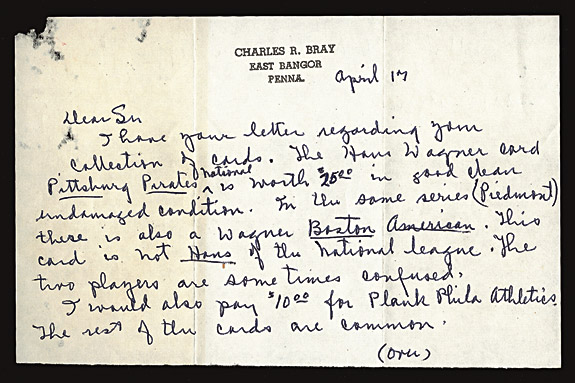 CHARLES R. BRAY
EAST BANGOR
PENNA.
April 17
Dear Sir
I have your letter regarding your
collection of cards. The Hans Wagner card
Pittsburg Pirates ^ National is worth $25.00 in good clean
undamaged condition. In the same series (Piedmont)
there is also a Wagner Boston American. This
card is not Hans of the National league. The
two players are some times confused.
I would also pay $10.00 for Plank Phila Athletics
The rest of the cards are common.
(over)